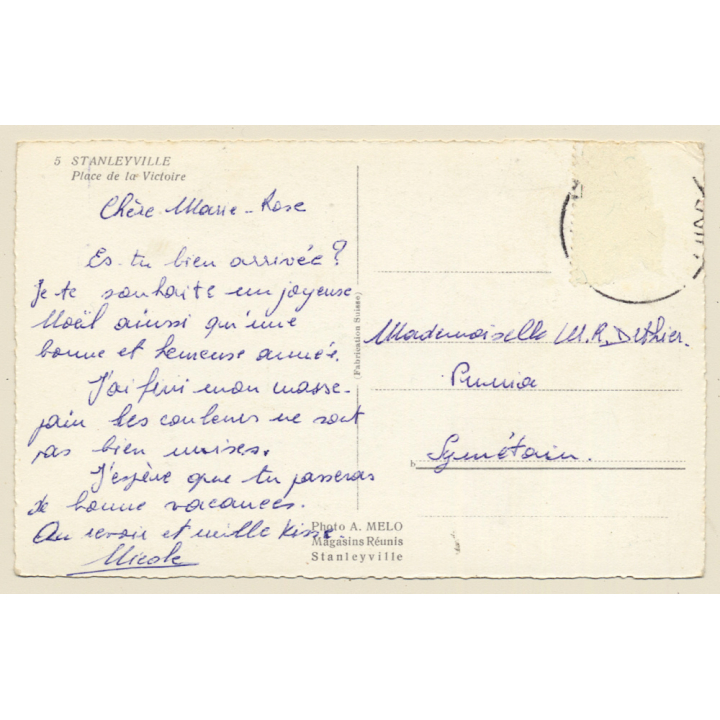 5 STANLEYVILLE
Place de la Victoire
Chère Marie-Rose
Es-tu bien arrivée?
Je te souhaite un joyeuse
Noël ainsi qu'une
bonne et heureuse année.
J'ai fini mon masse-
pain les couleurs ne sont
pas bien mises.
J'espère que tu passeras
de bonne vacances.
Au revoir et mille kiss.
Nicole
(Fabrication Suisse)
Photo A. MELO
Magasins Réunis
Stanleyville
Mademoiselle M.R. Dethier.
Punia
Symétain.